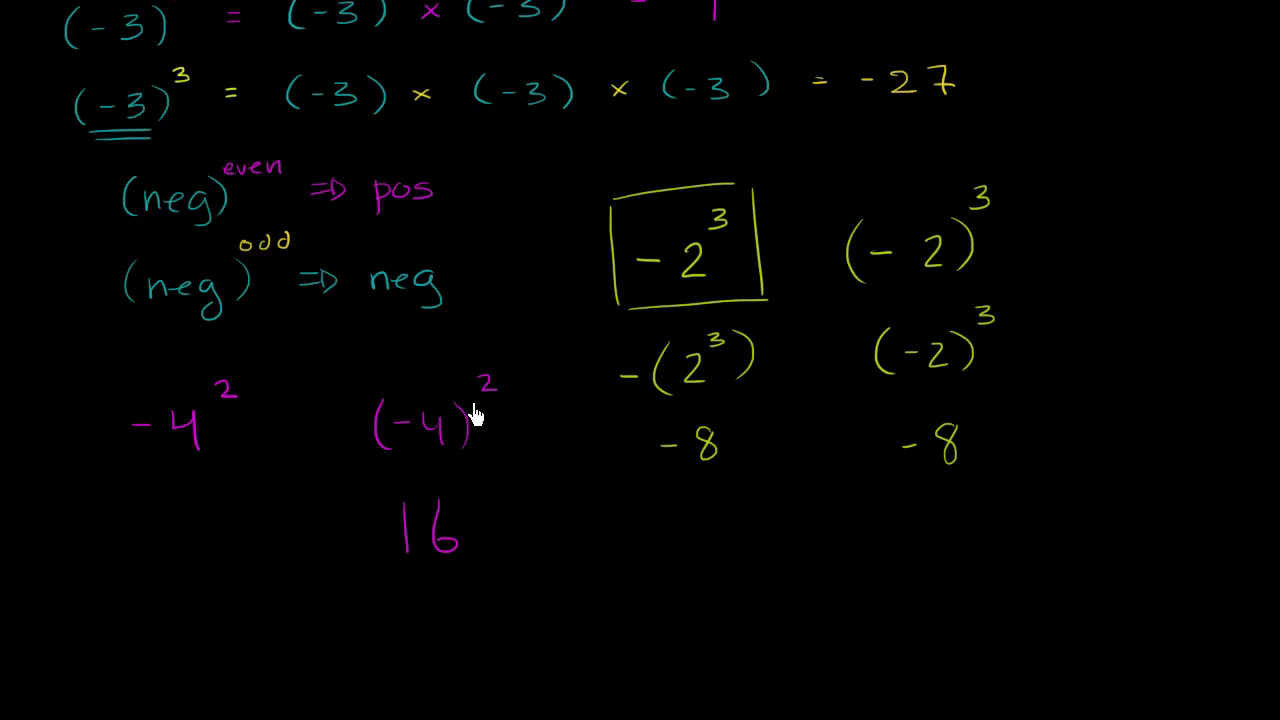 (-3) = (-3) × (-3) =
(-3)³ = (-3) × (-3) × (-3) = -27
(neg)^even ⇒ pos
(neg)^odd ⇒ neg
-2³ (-2)³
-(2³) (-2)³
-4² (-4)² -8 -8
16